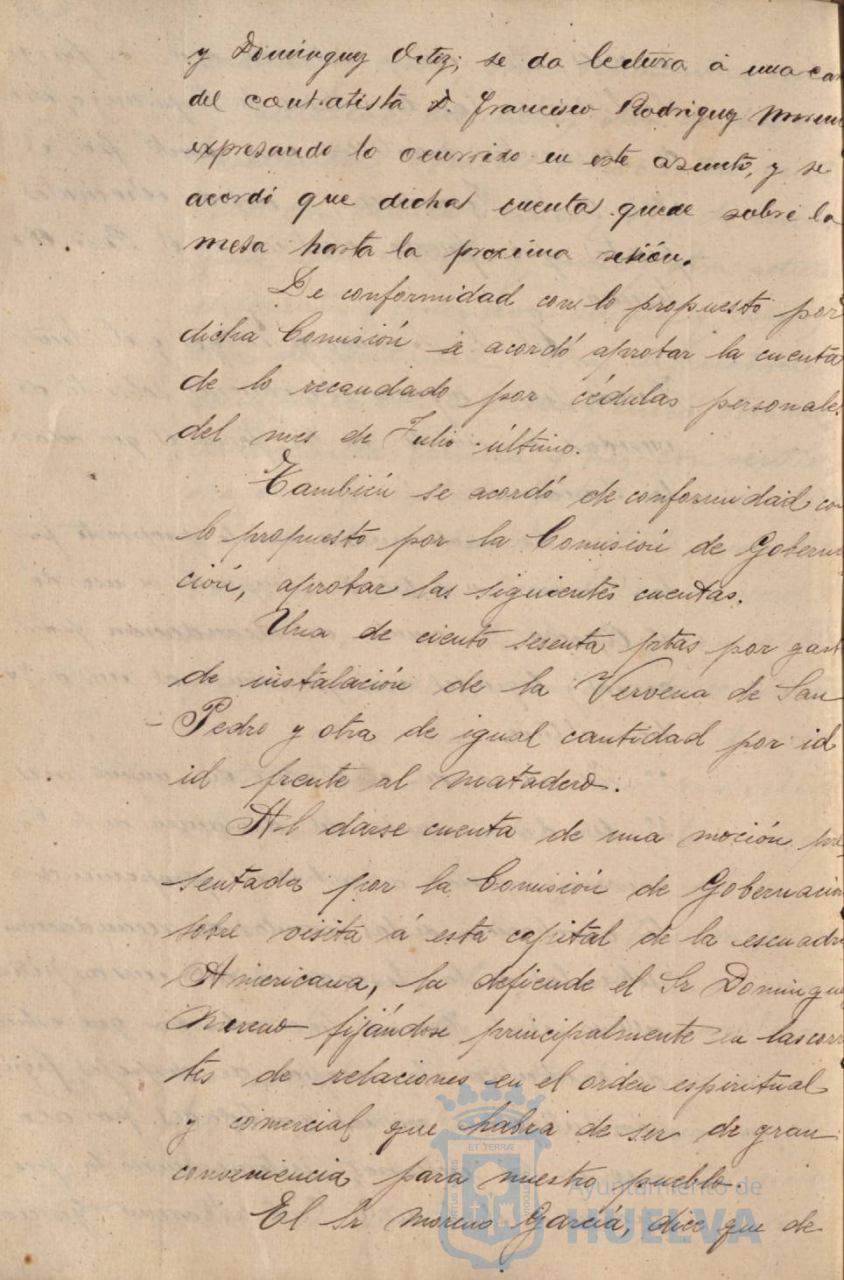 y Dominguez Ortiz; se da lectura á una car
del contratista D. Francisco Rodriguez Moreno
expresando lo ocurrido en este asunto, y se
acordó que dicha cuenta quede sobre la
mesa hasta la proxima sesión.
De conformidad con lo propuesto por
dicha Comisión se acordó aprobar la cuenta
de lo recaudado por cédulas personales
del mes de Julio último.
También se acordó de conformidad con
lo propuesto por la Comisión de Goberna
ción, aprobar las siguientes cuentas.
Una de ciento sesenta ptas por gast
de instalación de la Vervena de San
Pedro y otra de igual cantidad por id
id frente al matadero.
Al darse cuenta de una moción pre
sentada por la Comisión de Gobernación
sobre visita á esta capital de la escuadr
Americana, la defiende el Sr Domingue
Moreno fijándose principalmente en las corr
tes de relaciones en el orden espiritual
y comercial que habia de ser de gran
conveniencia para nuestro pueblo.
El Sr Moreno García, dice que de
Ayuntamiento de
HUELVA